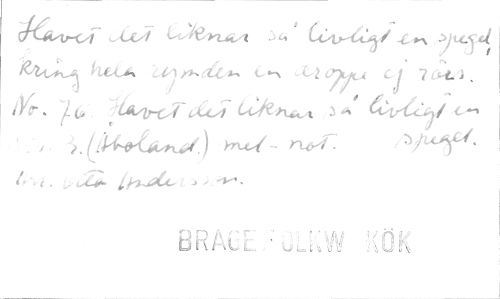 Havet det liknar så livligt en spegel,
kring hela rymden en droppe ej rörs.
No. 76. Havet det liknar så livligt en
3. (Åboland.) mel-not. spegel.
Otto Andersson.
BRAGE FOLKW KÖK